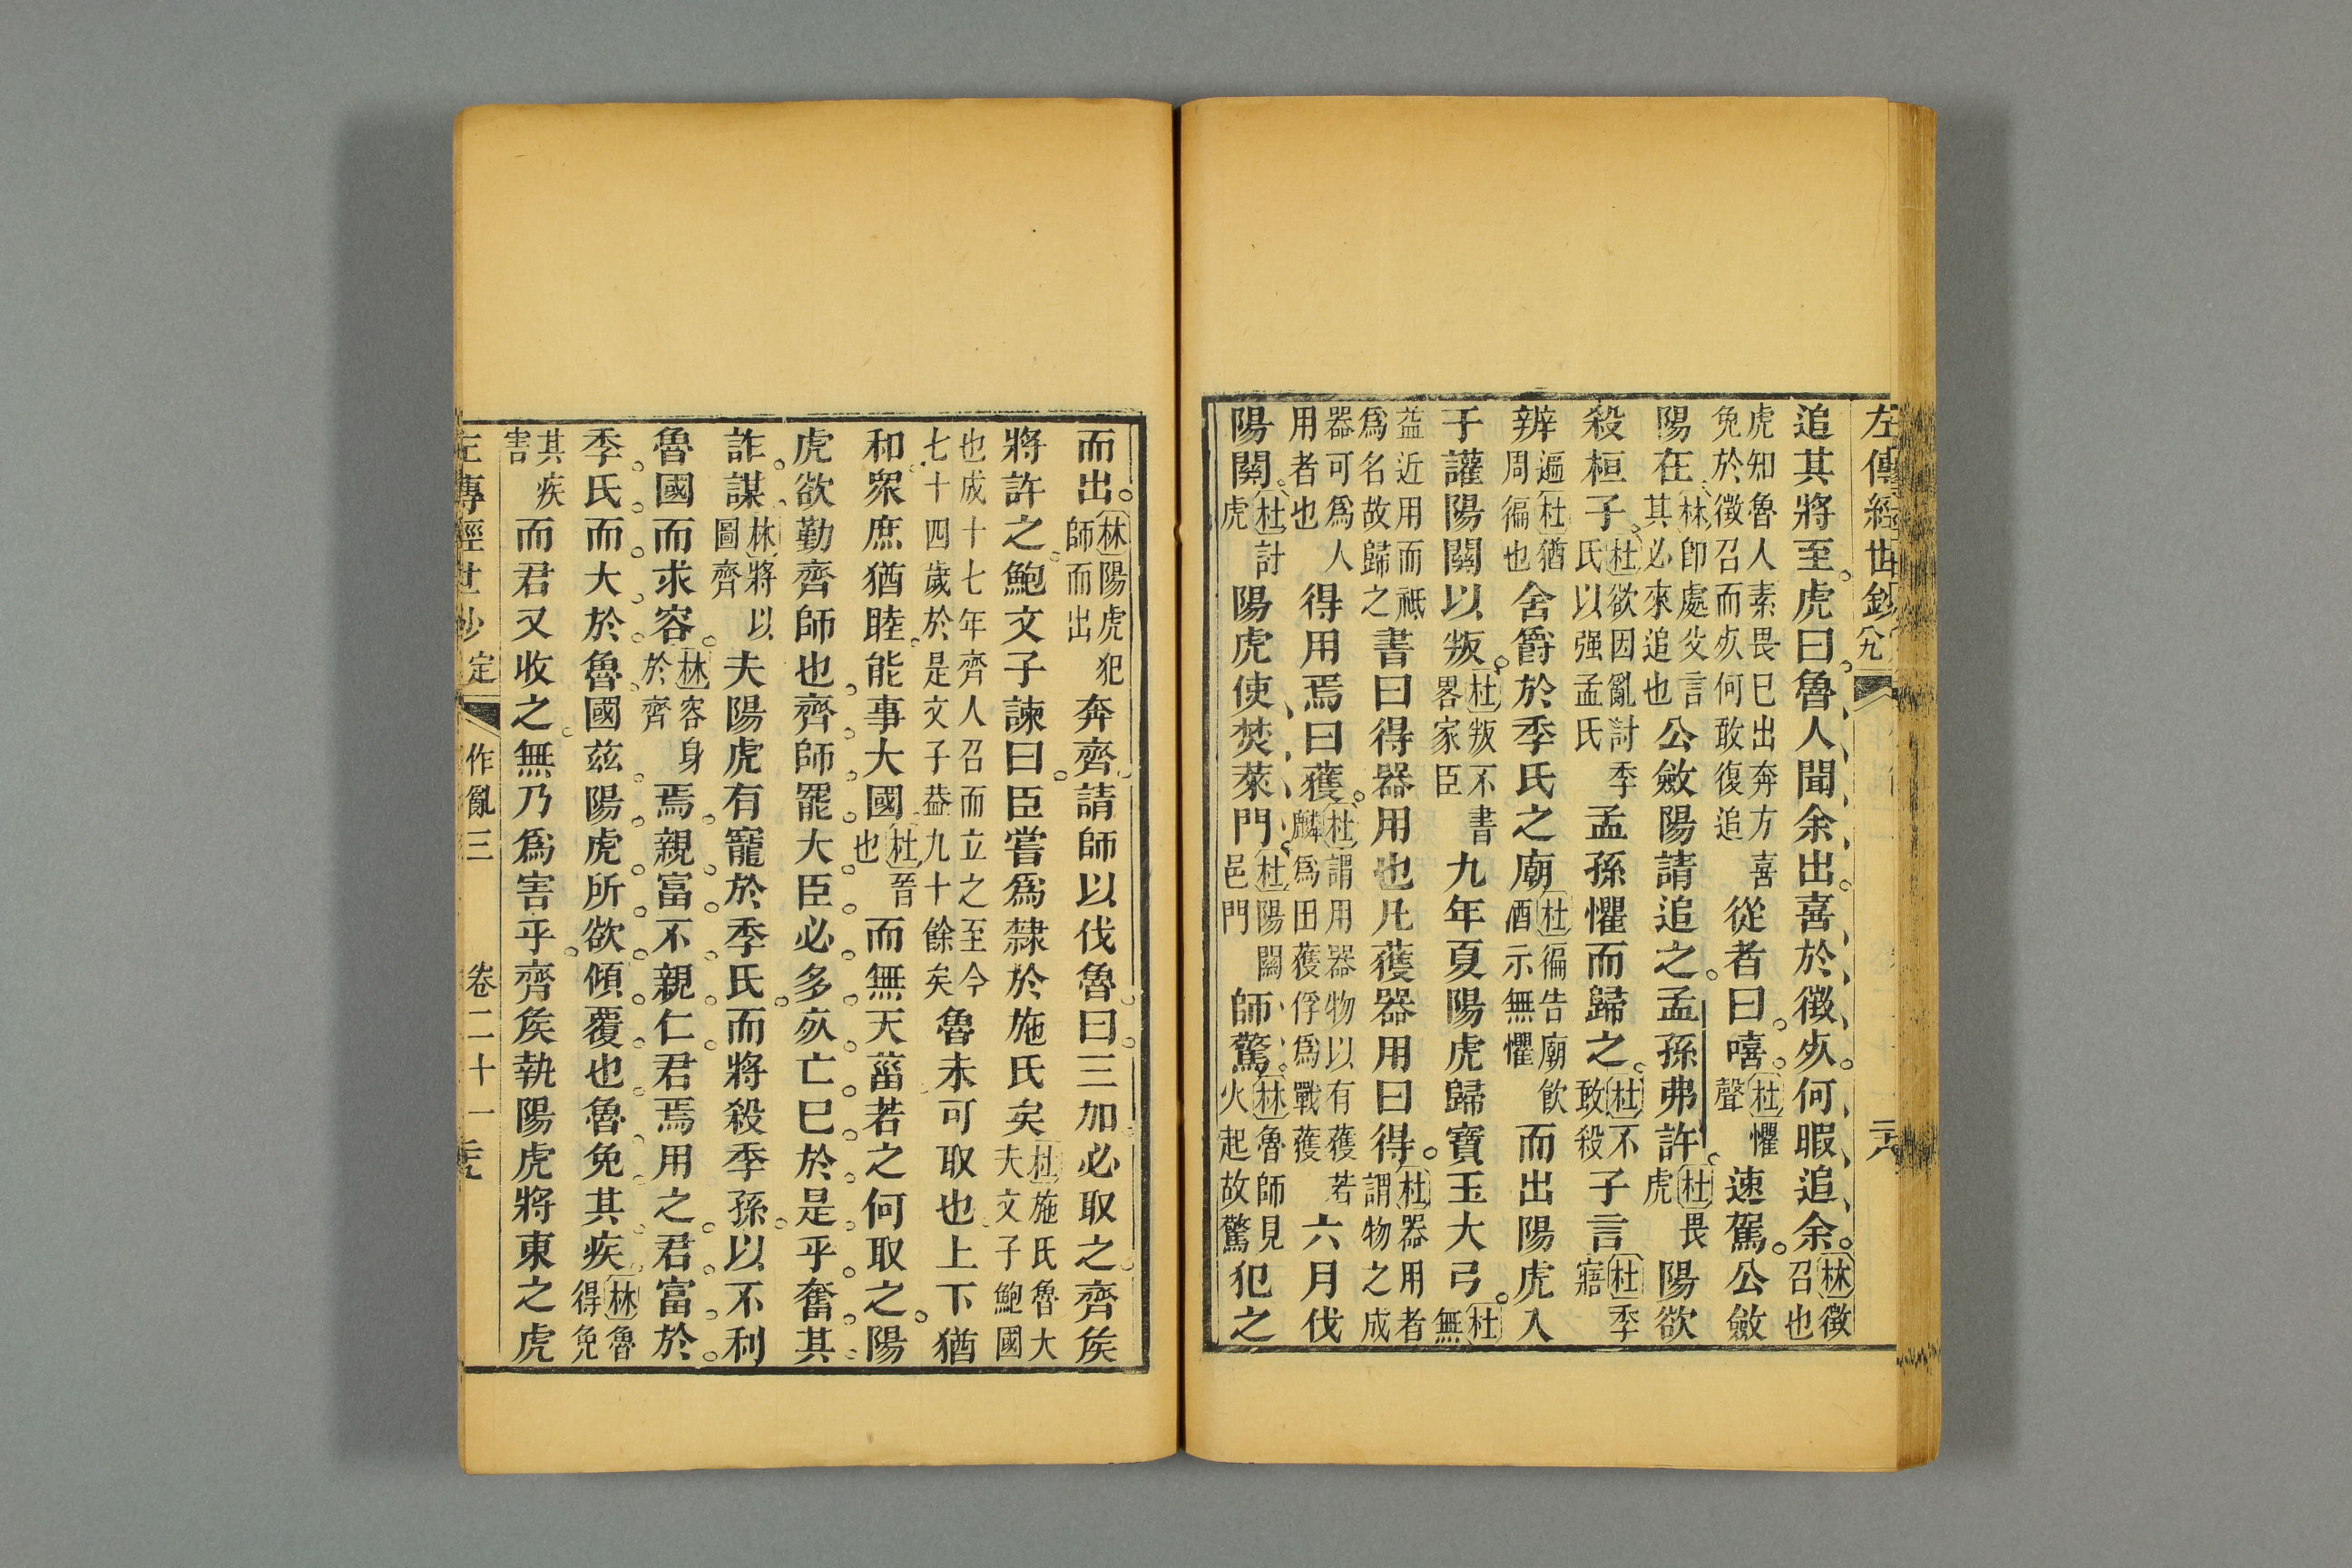 左傳經世鈔
追其將至虎曰魯人聞余出喜於徵死何暇追余林徵召也
虎知魯人素畏巳出奔方喜免於徵召而死何敢復追從者曰嘻杜懼聲速駕公斂
陽在林卽處父言其必來追也公斂陽請追之孟孫弗許杜畏虎陽欲
殺桓子杜欲因亂討季氏以强孟氏孟孫懼而歸之杜不敢殺子言杜季寤
辨遍杜猶周徧也舍爵於季氏之廟杜徧告廟飲酒示無懼而出陽虎入
于讙陽關以叛杜叛不書畧家臣九年夏陽虎歸寶玉大弓杜無
益近用而祗爲名故歸之書曰得器用也凡獲器用曰得杜器用者謂物之成
器可爲人用者也得用焉曰獲杜謂用器物以有獲若麟爲田獲俘爲戰獲六月伐
陽關杜討虎陽虎使焚萊門杜陽關邑門師驚林魯師見火起故驚犯之
而出林陽虎犯師而出奔齊請師以伐魯曰三加必取之齊矦
將許之鮑文子諫曰臣嘗爲隸於施氏矣杜施氏魯大夫文子鮑國
也成十七年齊人召而立之至今七十四歲於是文子葢九十餘矣魯未可取也上下猶
和衆庶猶睦能事大國杜晉也而無天菑若之何取之陽
虎欲勤齊師也齊師罷大臣必多死亡巳於是乎奮其
詐謀林將以圖齊夫陽虎有寵於季氏而將殺季孫以不利
魯國而求容林容身於齊焉親富不親仁君焉用之君富於
季氏而大於魯國茲陽虎所欲傾覆也魯免其疾林魯得免
其疾害而君又收之無乃爲害乎齊矦執陽虎將東之虎
左傳經世鈔 定 作亂三 卷二十一